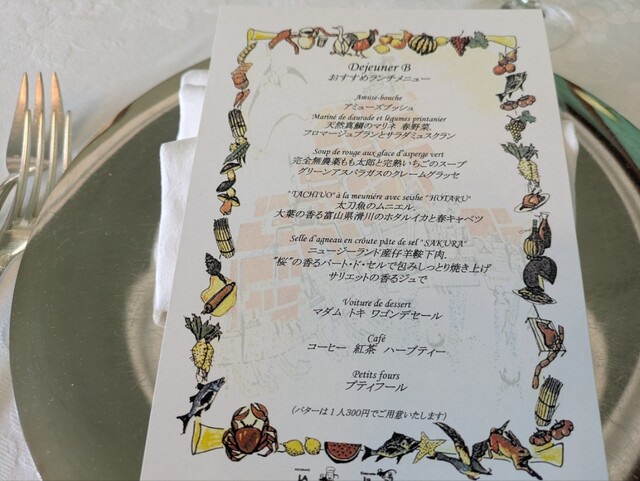 Dejeuner B
おすすめランチメニュー
Amuse-bouche
アミューズブッシュ
Marine de daurade et légumes printanier
天然真鯛のマリネ 春野菜.
フロマージュブランとサラダミュスクラン
Soup de rouge aux glace d'asperge vert
完全無農薬もも太郎と完熟いちごのスープ
グリーンアスパラガスのクレームグラッセ
"TACHIUO" à la meunière avec seishe "HOTARU"
太刀魚のムニエル.
大葉の香る富山県滑川のホタルイカと春キャベツ
Selle d'agneau en croûte pâte de sel "SAKURA"
ニュージーランド産仔羊鞍下肉.
"桜"の香るパート・ド・セルで包みしっとり焼き上げ
サリエットの香るジュで
Voiture de dessert
マダム トキ ワゴンデセール
Café
コーヒー 紅茶 ハーブティー
Petits fours
プティフール
(バターは1人300円でご用意いたします)
LA